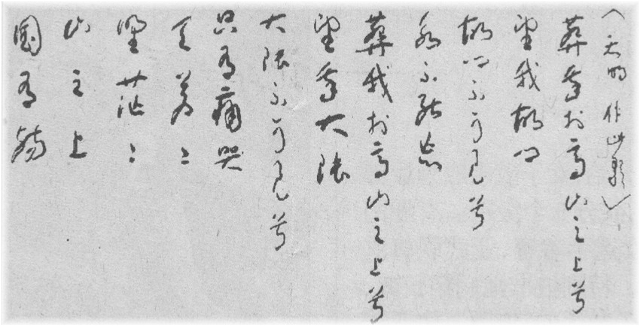 （天明 作此歌）
葬我於高山之上兮
望我故鄉
故鄉不可見兮
永不能忘
葬我於高山之上兮
望我大陸
大陸不可見兮
只有痛哭
天蒼〻
野茫〻
山之上
國有殤